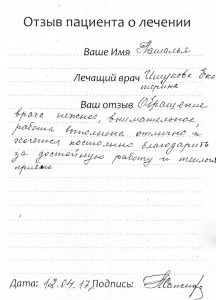 Отзыв пациента о лечении
Ваше Имя Наталья
Лечащий врач Ишукова Ека
терина
Ваш отзыв Обращение
врача нежное, внимательное,
работа выполнена отлично и
хочется постоянно благодарить
за достойную работу и теплый
приём
Дата: 12.04.17 Подпись: